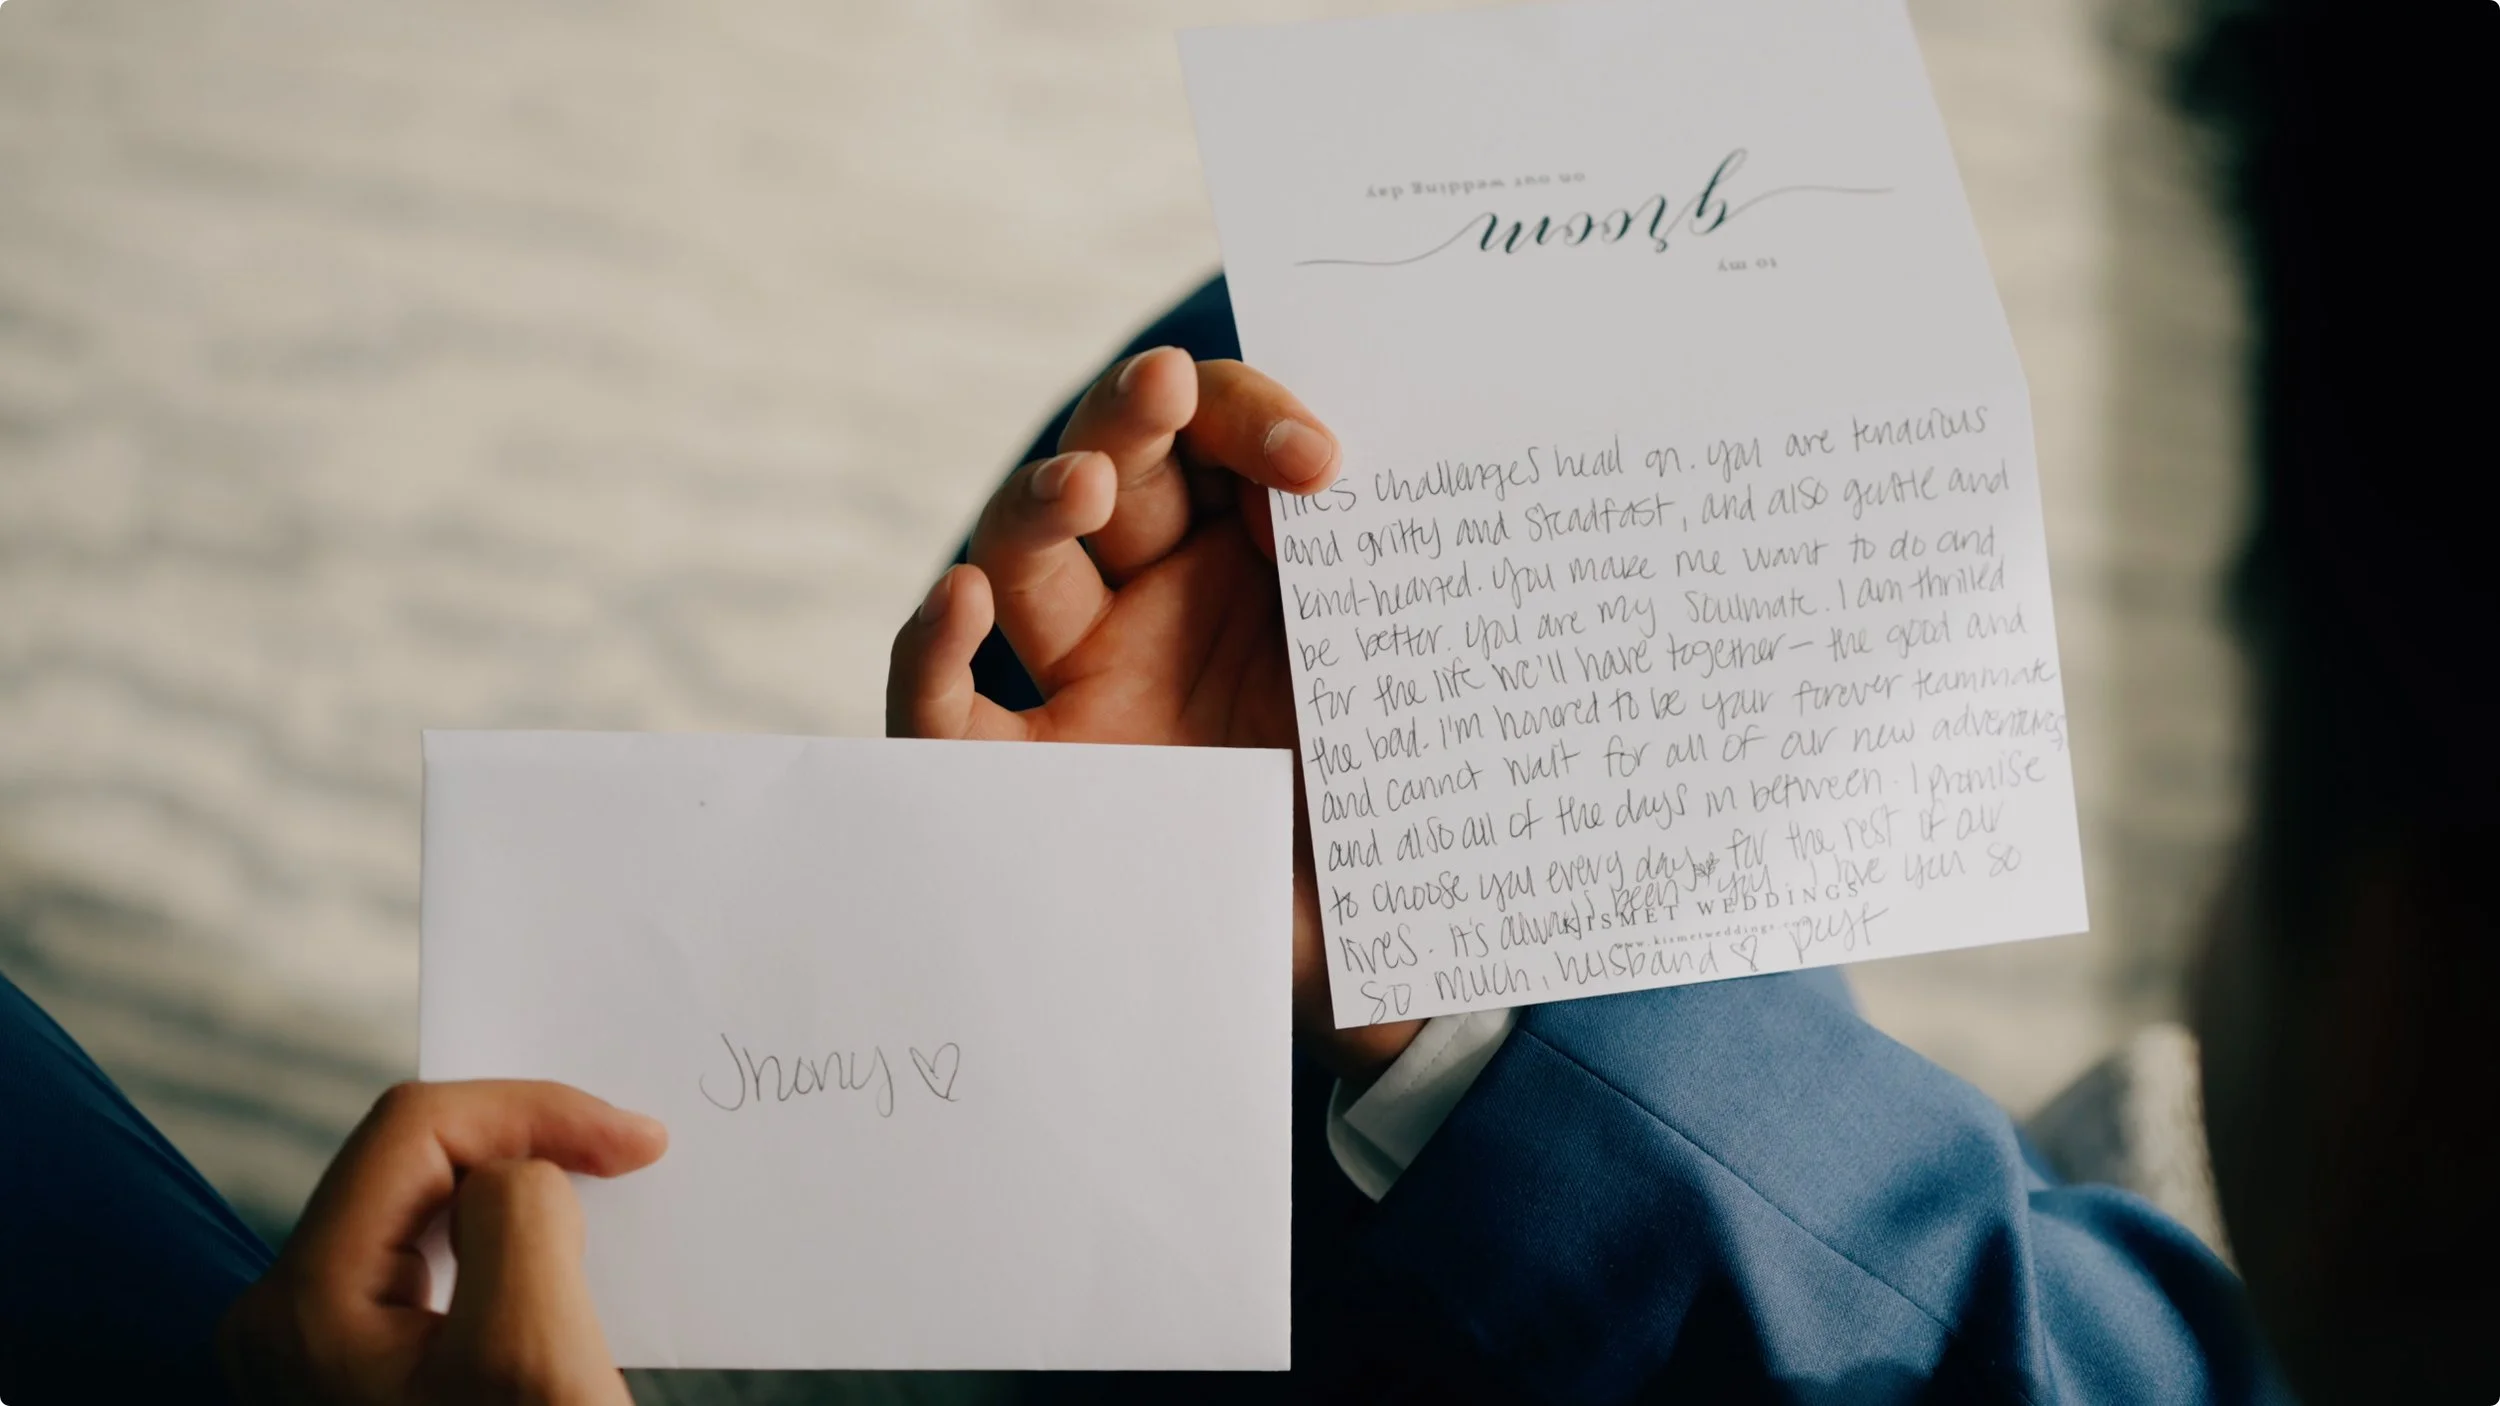 to my
groom
on our wedding day
life's challenges head on. you are tenacious
and gritty and steadfast, and also gentle and
kind-hearted. You make me want to do and
be better. You are my soulmate. I am thrilled
for the life we'll have together – the good and
the bad. I'm honored to be your forever teammate
and cannot wait for all of our new adventures,
and also all of the days in between. I promise
to choose you every day for the rest of our
lives. it's always been you. I love you so
so much, husband ♡
KISMET WEDDINGS
www.kismetweddings.com
Jhony ♡